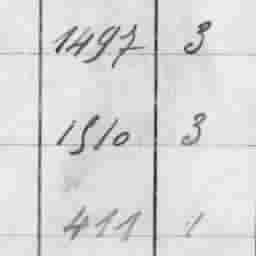 1497 3
1510 3
411 1